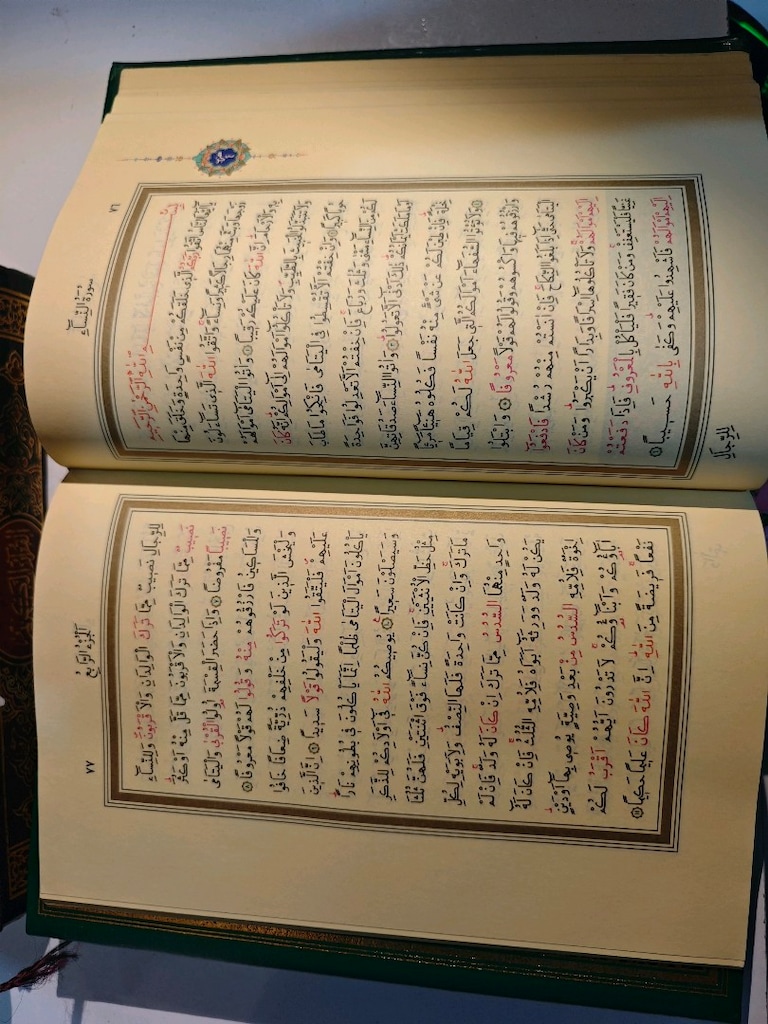 ٧٦
سورة النساء
بِسْمِ اللّٰهِ الرَّحْمٰنِ الرَّحِيمِ
يَا اَيُّهَا النَّاسُ اتَّقُوا رَبَّكُمُ الَّذِي خَلَقَكُمْ مِنْ نَفْسٍ وَاحِدَةٍ وَخَلَقَ مِنْهَا
زَوْجَهَا وَبَثَّ مِنْهُمَا رِجَالًا كَثِيرًا وَنِسَاءً وَاتَّقُوا اللّٰهَ الَّذِي تَسَاءَلُونَ
بِهِ وَالْاَرْحَامَ اِنَّ اللّٰهَ كَانَ عَلَيْكُمْ رَقِيبًا ١ وَاٰتُوا الْيَتَامٰى اَمْوَالَهُمْ
وَلَا تَتَبَدَّلُوا الْخَبِيثَ بِالطَّيِّبِ وَلَا تَأْكُلُوا اَمْوَالَهُمْ اِلٰى اَمْوَالِكُمْ اِنَّهُ كَانَ
حُوبًا كَبِيرًا ٢ وَاِنْ خِفْتُمْ اَلَّا تُقْسِطُوا فِي الْيَتَامٰى فَانْكِحُوا مَا طَابَ
لَكُمْ مِنَ النِّسَاءِ مَثْنٰى وَثُلَاثَ وَرُبَاعَ فَاِنْ خِفْتُمْ اَلَّا تَعْدِلُوا فَوَاحِدَةً
اَوْ مَا مَلَكَتْ اَيْمَانُكُمْ ذٰلِكَ اَدْنٰى اَلَّا تَعُولُوا ٣ وَاٰتُوا النِّسَاءَ صَدُقَاتِهِنَّ
نِحْلَةً فَاِنْ طِبْنَ لَكُمْ عَنْ شَيْءٍ مِنْهُ نَفْسًا فَكُلُوهُ هَنِيئًا مَرِيئًا
٤ وَلَا تُؤْتُوا السُّفَهَاءَ اَمْوَالَكُمُ الَّتِي جَعَلَ اللّٰهُ لَكُمْ قِيَامًا
وَارْزُقُوهُمْ فِيهَا وَاكْسُوهُمْ وَقُولُوا لَهُمْ قَوْلًا مَعْرُوفًا ٥ وَابْتَلُوا
الْيَتَامٰى حَتّٰى اِذَا بَلَغُوا النِّكَاحَ فَاِنْ اٰنَسْتُمْ مِنْهُمْ رُشْدًا فَادْفَعُوا
اِلَيْهِمْ اَمْوَالَهُمْ وَلَا تَأْكُلُوهَا اِسْرَافًا وَبِدَارًا اَنْ يَكْبَرُوا وَمَنْ كَانَ
غَنِيًّا فَلْيَسْتَعْفِفْ وَمَنْ كَانَ فَقِيرًا فَلْيَأْكُلْ بِالْمَعْرُوفِ فَاِذَا دَفَعْتُمْ
اِلَيْهِمْ اَمْوَالَهُمْ فَاَشْهِدُوا عَلَيْهِمْ وَكَفٰى بِاللّٰهِ حَسِيبًا ٦
لِلرِّجَالِ
الجزء الرابع
٧٧
لِلرِّجَالِ نَصِيبٌ مِمَّا تَرَكَ الْوَالِدَانِ وَالْاَقْرَبُونَ وَلِلنِّسَاءِ
نَصِيبٌ مِمَّا تَرَكَ الْوَالِدَانِ وَالْاَقْرَبُونَ مِمَّا قَلَّ مِنْهُ اَوْ كَثُرَ
نَصِيبًا مَفْرُوضًا ٧ وَاِذَا حَضَرَ الْقِسْمَةَ اُولُوا الْقُرْبٰى وَالْيَتَامٰى
وَالْمَسَاكِينُ فَارْزُقُوهُمْ مِنْهُ وَقُولُوا لَهُمْ قَوْلًا مَعْرُوفًا ٨
وَلْيَخْشَ الَّذِينَ لَوْ تَرَكُوا مِنْ خَلْفِهِمْ ذُرِّيَّةً ضِعَافًا خَافُوا
عَلَيْهِمْ فَلْيَتَّقُوا اللّٰهَ وَلْيَقُولُوا قَوْلًا سَدِيدًا ٩ اِنَّ الَّذِينَ
يَأْكُلُونَ اَمْوَالَ الْيَتَامٰى ظُلْمًا اِنَّمَا يَأْكُلُونَ فِي بُطُونِهِمْ نَارًا
وَسَيَصْلَوْنَ سَعِيرًا ١٠ يُوصِيكُمُ اللّٰهُ فِي اَوْلَادِكُمْ لِلذَّكَرِ
مِثْلُ حَظِّ الْاُنْثَيَيْنِ فَاِنْ كُنَّ نِسَاءً فَوْقَ اثْنَتَيْنِ فَلَهُنَّ ثُلُثَا
مَا تَرَكَ وَاِنْ كَانَتْ وَاحِدَةً فَلَهَا النِّصْفُ وَلِاَبَوَيْهِ لِكُلِّ
وَاحِدٍ مِنْهُمَا السُّدُسُ مِمَّا تَرَكَ اِنْ كَانَ لَهُ وَلَدٌ فَاِنْ لَمْ
يَكُنْ لَهُ وَلَدٌ وَوَرِثَهُ اَبَوَاهُ فَلِاُمِّهِ الثُّلُثُ فَاِنْ كَانَ لَهُ
اِخْوَةٌ فَلِاُمِّهِ السُّدُسُ مِنْ بَعْدِ وَصِيَّةٍ يُوصِي بِهَا اَوْ دَيْنٍ
اٰبَاؤُكُمْ وَاَبْنَاؤُكُمْ لَا تَدْرُونَ اَيُّهُمْ اَقْرَبُ لَكُمْ
نَفْعًا فَرِيضَةً مِنَ اللّٰهِ اِنَّ اللّٰهَ كَانَ عَلِيمًا حَكِيمًا ١١